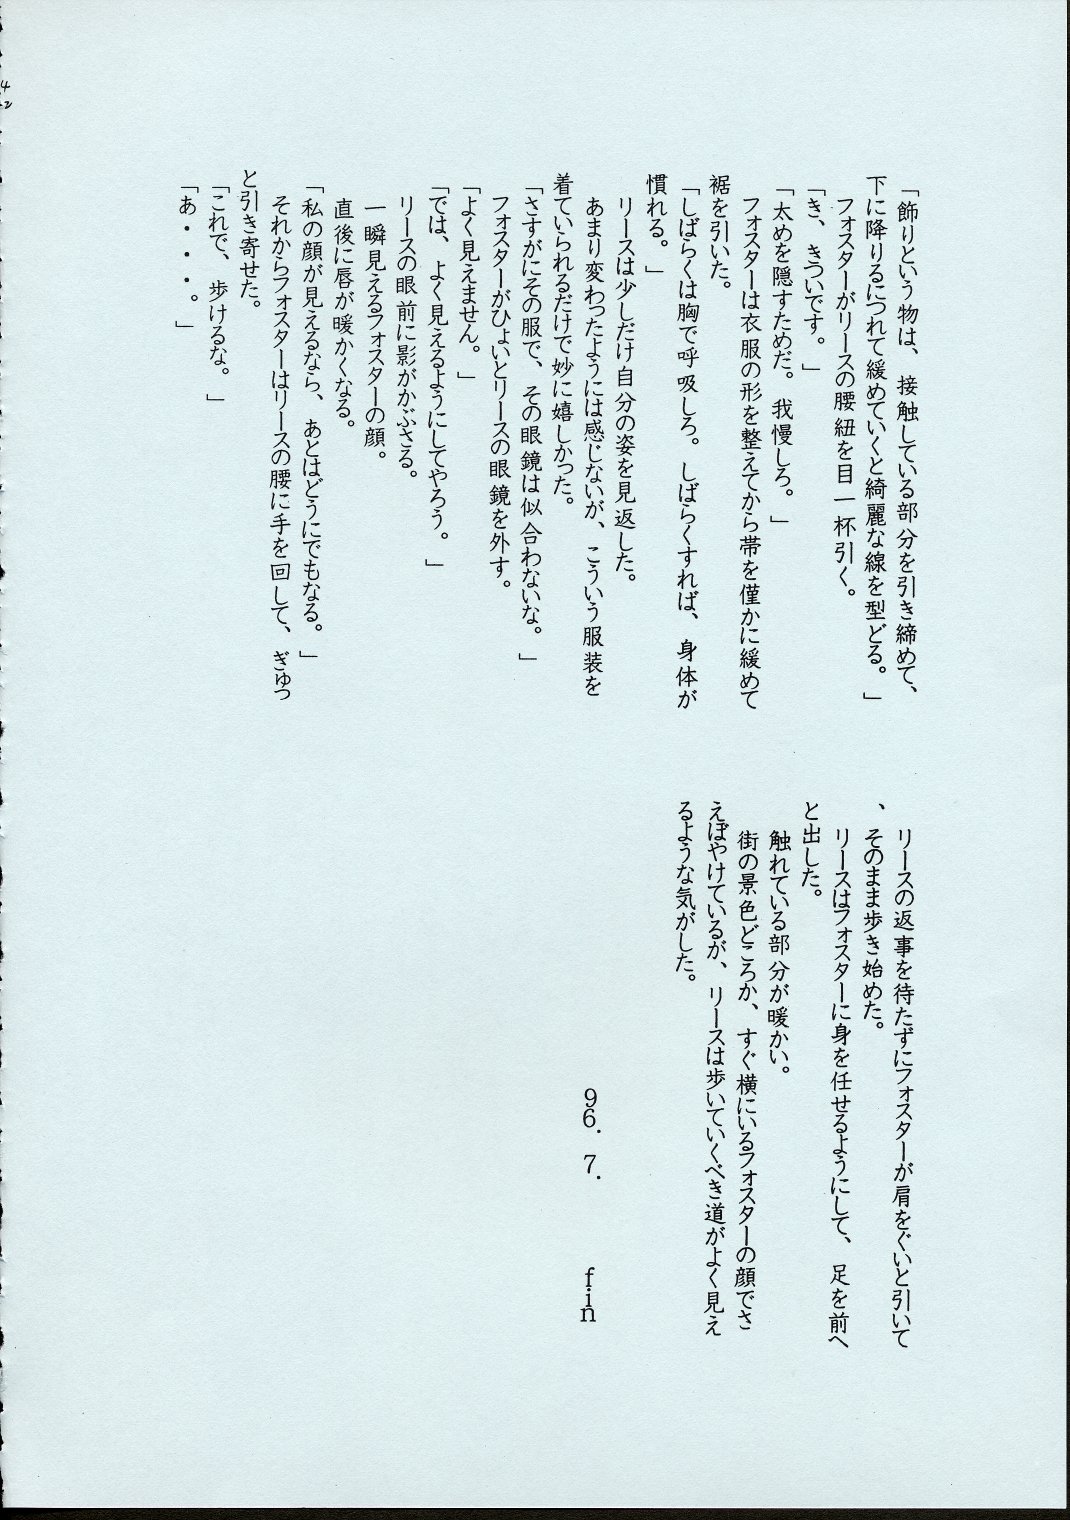 「飾りという物は、接触している部分を引き締めて、
下に降りるにつれて緩めていくと綺麗な線を型どる。」
フォスターがリースの腰紐を目一杯引く。
「き、きついです。」
「太めを隠すためだ。我慢しろ。」
フォスターは衣服の形を整えてから帯を僅かに緩めて
裾を引いた。
「しばらくは胸で呼吸しろ。しばらくすれば、身体が
慣れる。」
リースは少しだけ自分の姿を見返した。
あまり変わったようには感じないが、こういう服装を
着ていられるだけで妙に嬉しかった。
「さすがにその服で、その眼鏡は似合わないな。」
フォスターがひょいとリースの眼鏡を外す。
「よく見えません。」
「では、よく見えるようにしてやろう。」
リースの眼前に影がかぶさる。
一瞬見えるフォスターの顔。
直後に唇が暖かくなる。
「私の顔が見えるなら、あとはどうにでもなる。」
それからフォスターはリースの腰に手を回して、ぎゅっ
と引き寄せた。
「これで、歩けるな。」
「あ・・・。」
リースの返事を待たずにフォスターが肩をぐいと引いて
、そのまま歩き始めた。
リースはフォスターに身を任せるようにして、足を前へ
と出した。
触れている部分が暖かい。
街の景色どころか、すぐ横にいるフォスターの顔でさ
えぼやけているが、リースは歩いていくべき道がよく見え
るような気がした。
96. 7. fin
42